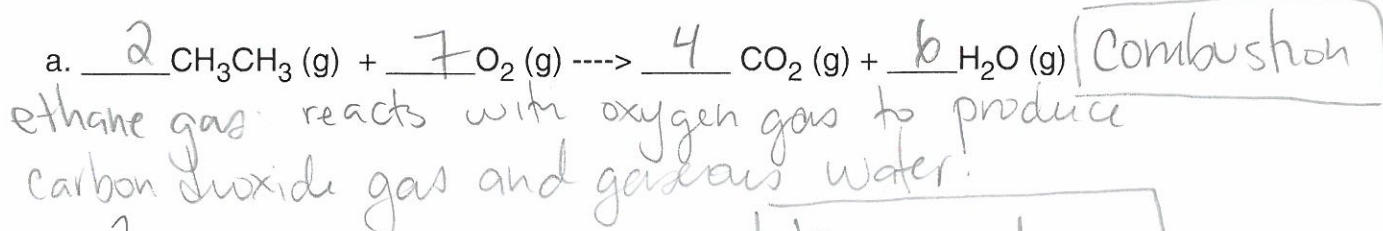 a. 2 CH₃CH₃ (g) + 7 O₂ (g) ----> 4 CO₂ (g) + 6 H₂O (g) Combustion
ethane gas reacts with oxygen gas to produce
carbon dioxide gas and gaseous water.